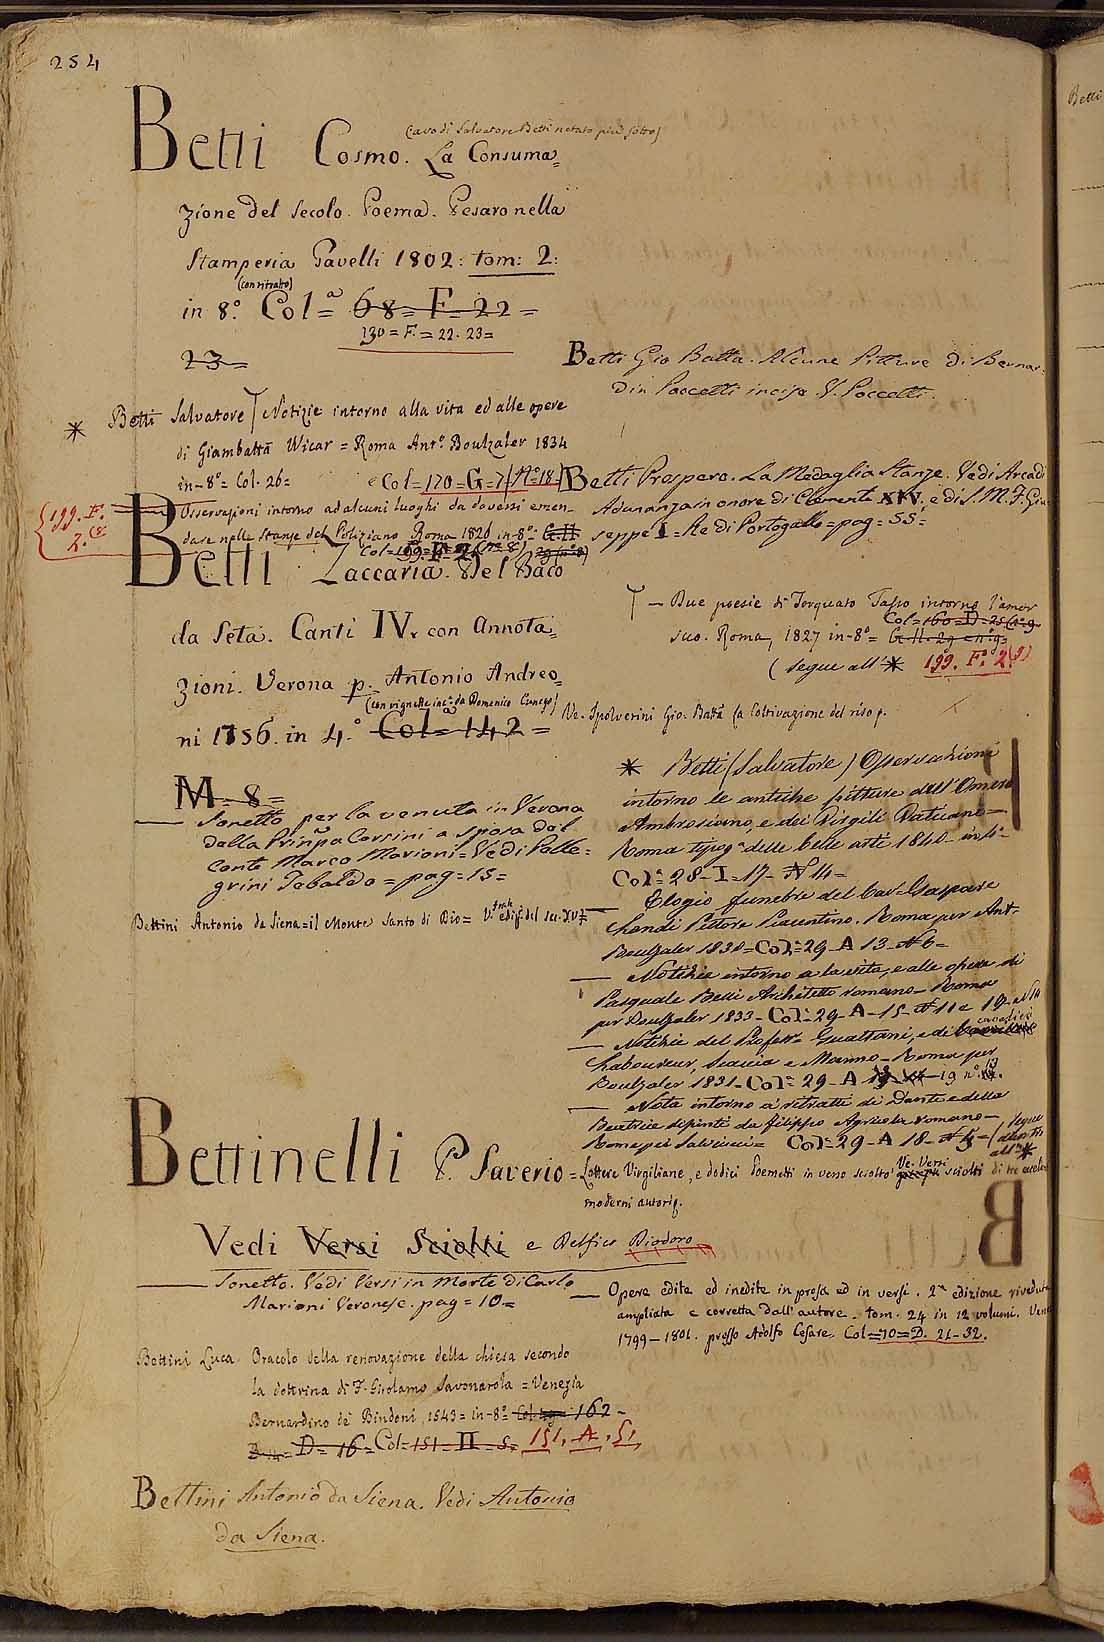 254
Betti Cosmo. La Consuma=
(avo di Salvatore Betti notato più sotto)
zione del secolo. Poema. Pesaro nella
Stamperia Gavelli 1802: tom: 2:
(con ritratto)
in 8.° Col=a 68= F. 22=
130= F.= 22. 23=
23=
* Betti Salvatore Notizie intorno alla vita ed alle opere
di Giambattã Wicar = Roma Ant.° Boulzaler 1834
in-8°= Col. 26= Col=170=G=7 (N°18)
{199. F.
2. (8.
Osservazioni intorno ad alcuni luoghi da doversi emen-
dare nelle stanze del Poliziano Roma 1826 in-8°= G.H
29 (n°8)
Betti Zaccaria. Del Baco
da Seta. Canti IV. con Annota=
zioni. Verona p. Antonio Andreo=
(con vignette inc.e da Domenico Cunego)
ni 1756. in 4.° Col=a 142=
M. 8=
— Sonetto per la venuta in Verona
della Prinpã Corsini a sposa del
Conte Marco Marioni= Vedi Pelle=
grini Tebaldo= pag=15=
Bettini Antonio da Siena=il Monte Santo di Dio= V. edif. del sec. XV
Bettinelli P. Saverio
Vedi Versi Sciolti e Delfico Diodoro
— Sonetto. Vedi Versi in Morte di Carlo
Marioni Veronese. pag=10=
Bettini Luca Oracolo della renovazione della chiesa secondo
la dottrina di F. Girolamo Savonarola =Venezia
Bernardino de Bindoni, 1543= in-8° Col 162-
D= 16= Col=151= II= 5= 151. A. 51.
Bettini Antonio da Siena. Vedi Antonio
da Siena.
Betti Gio Batta. Alcune Pitture di Bernar-
din Poccetti incise. V. Poccetti.
Betti Prospero. La Medaglia Stanze. Vedi Arcadi
Adunanza in onore di Clemente XIV, e di S. M. F. Giu
seppe I= Re di Portogallo= pag= 55=
— Due poesie di Torquato Tasso intorno l'amor
Col=160=D=25 (n°9
suo. Roma, 1827 in-8°= G.H. 29 =n°9=
(segue all'* 199. F. 2 (9)
Ve. Spolverini Gio. Battã la Coltivazione del riso p.
* Betti (Salvatore) Osservazioni
intorno le antiche pitture dell'Omero
Ambrosiano, e dei Virgili Vaticano-
Roma tipog.a delle belle arti 1840- in 4°-
Col.a 28-I-17- N 14-
— Elogio funebre del Cav. Gaspare
Landi Pittore Piacentino. Roma per Ant.
Boulzaler 1830=Col.a 29-A 13-N 6=
— Notizie intorno a la vita, e alle opere di
Pasquale Belli Architetto romano- Roma
per Boulzaler 1833- Col.a 29-A-15-N 11 e 19
— Notizie del Profess.r Guattani, e di
Laboureur, e Manno- Roma per
Boulzaler 1831-Col.a 29-A 19 n.° 13.
— Nota intorno a' ritratti di Dante e della
Beatrice dipinti da Filippo Agricola romano-
Roma per Salviucci= Col.a 29-A 18-N 5-(segue
all'*
=Lettere Virgiliane, e dodici Poemetti in verso sciolto Ve. Versi sciolti di tre eccel
moderni autori p.
— Opere edite ed inedite in prosa ed in versi. 2.a edizione riveduta
ampliata e corretta dall'autore. tom. 24 in 12 volumi. Vene
1799-1801. presso Adolfo Cesare. Col=70=D. 21-32.
Betti